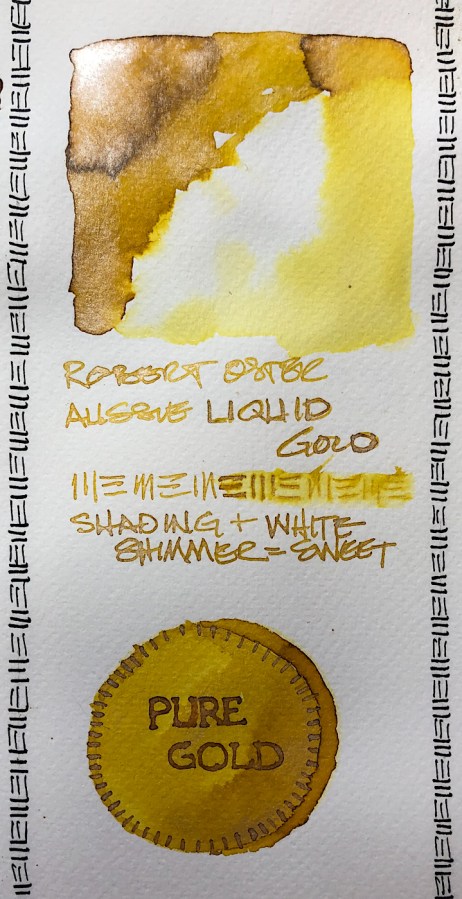 ROBERT OSTER
AUSSIE LIQUID
GOLD
SHADING + WHITE
SHIMMER = SWEET
PURE
GOLD